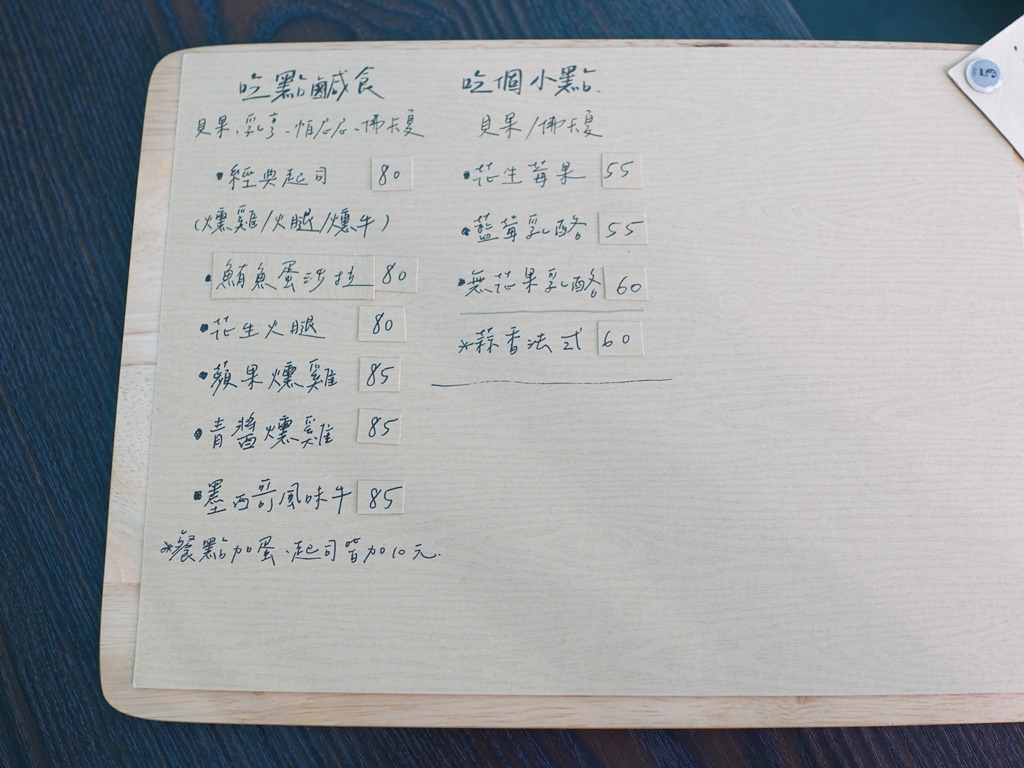 吃點鹹食
貝果、乳亨、帕尼尼、佛卡夏
•經典起司 80
(燻雞/火腿/燻牛)
•鮪魚蛋沙拉 80
•花生火腿 80
•蘋果燻雞 85
•青醬燻雞 85
•墨西哥風味牛 85
*餐點加蛋、起司皆加10元.
吃個小點.
貝果/佛卡夏
•花生莓果 55
•藍莓乳酪 55
•無花果乳酪 60
*蒜香法式 60